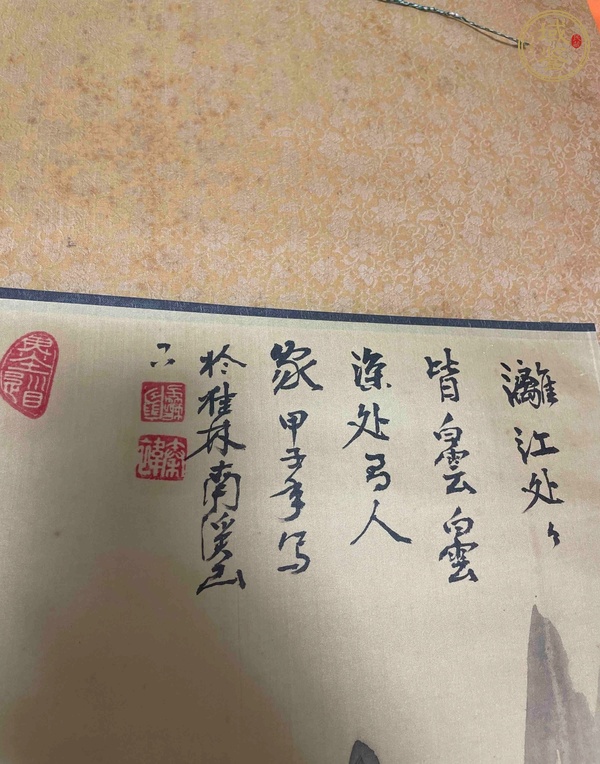 灕江处々
皆白雲白雲
深处有人
家甲子年写
於桂林南溪山
下